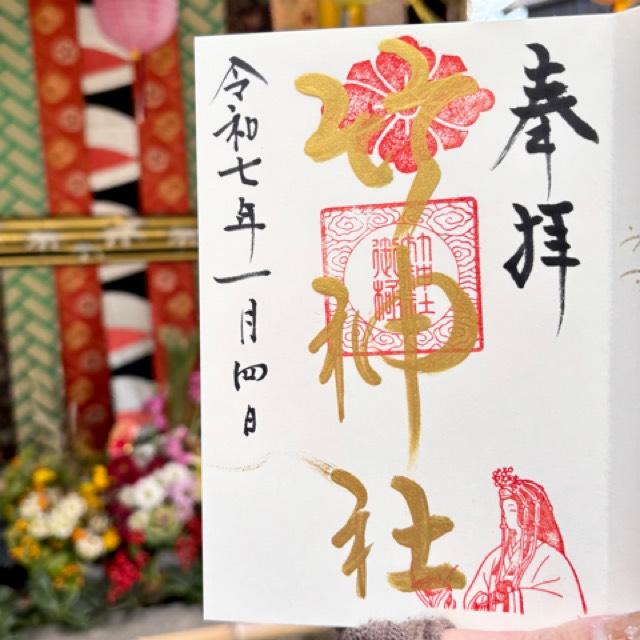 奉拝
竹神社
令和七年一月四日